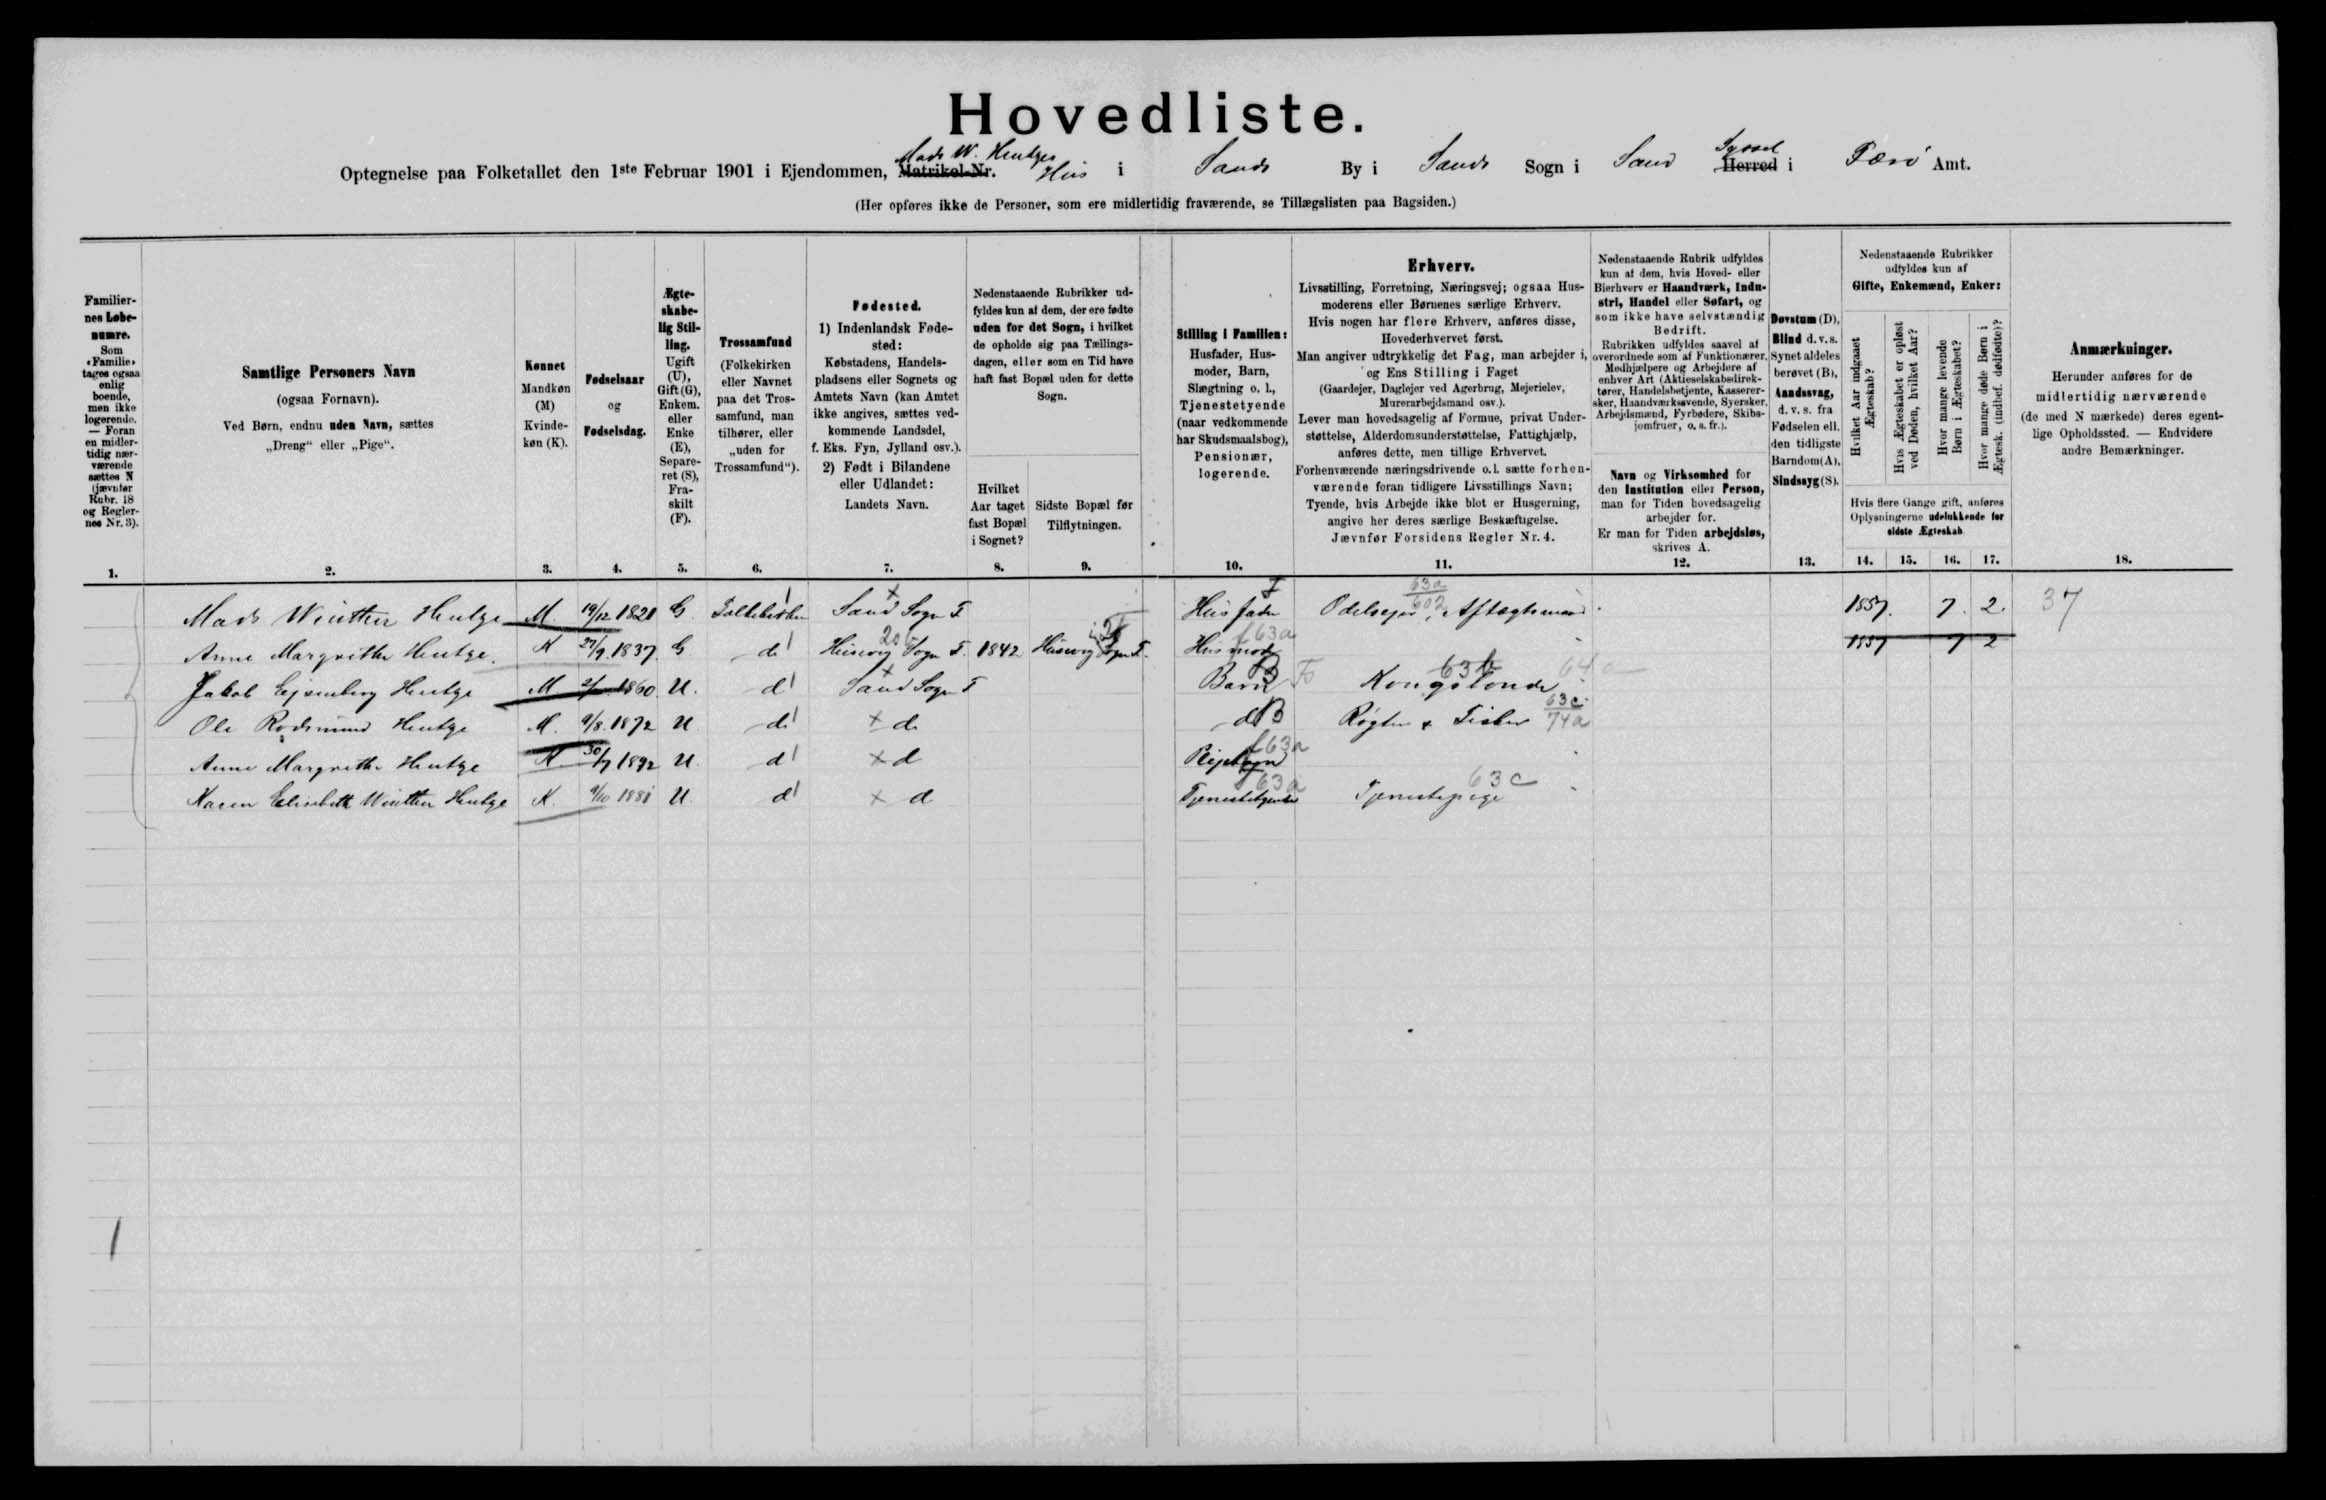 Hovedliste.
Optegnelse paa Folketallet den 1ste Februar 1901 i Ejendommen, Matrikel-Nr. Mads W. Hentzes Hus i Sands By i Sands Sogn i Sand Herred Syssel i Færø Amt.
(Her opføres ikke de Personer, som ere midlertidig fraværende, se Tillægslisten paa Bagsiden.)
Familiernes Løbenumre. Som «Familie» tages ogsaa enlig boende, men ikke logerende. — Foran en midlertidig nærværende sættes N (jævnfør Rubr. 18 og Reglernes Nr. 3).
Samtlige Personers Navn (ogsaa Fornavn). Ved Børn, endnu uden Navn, sættes „Dreng“ eller „Pige“.
Kønnet Mandkøn (M) Kvindekøn (K).
Fødselsaar og Fødselsdag.
Ægteskabelig Stilling. Ugift (U), Gift (G), Enkem. eller Enke (E), Separeret (S), Fraskilt (F).
Trossamfund (Folkekirken eller Navnet paa det Trossamfund, man tilhører, eller „uden for Trossamfund“).
Fødested. 1) Indenlandsk Fødested: Købstadens, Handelspladsens eller Sognets og Amtets Navn (kan Amtet ikke angives, sættes vedkommende Landsdel, f. Eks. Fyn, Jylland osv.). 2) Født i Bilandene eller Udlandet: Landets Navn.
Nedenstaaende Rubrikker udfyldes kun af dem, der ere fødte uden for det Sogn, i hvilket de opholde sig paa Tællingsdagen, eller som en Tid have haft fast Bopæl uden for dette Sogn.
Hvilket Aar taget fast Bopæl i Sognet?
Sidste Bopæl før Tilflytningen.
Stilling i Familien: Husfader, Husmoder, Barn, Slægtning o. l., Tjenestetyende (naar vedkommende har Skudsmaalsbog), Pensionær, logerende.
Erhverv.
Livsstilling, Forretning, Næringsvej; ogsaa Husmoderens eller Børnenes særlige Erhverv.
Hvis nogen har flere Erhverv, anføres disse, Hovederhvervet først.
Man angiver udtrykkelig det Fag, man arbejder i, og Ens Stilling i Faget
(Gaardejer, Daglejer ved Agerbrug, Mejerielev, Murerarbejdsmand osv.).
Lever man hovedsagelig af Formue, privat Understøttelse, Alderdomsunderstøttelse, Fattighjælp, anføres dette, men tillige Erhvervet.
Forhenværende næringsdrivende o. l. sætte forhenværende foran tidligere Livsstillings Navn;
Tyende, hvis Arbejde ikke blot er Husgerning, angive her deres særlige Beskæftigelse.
Jævnfør Forsidens Regler Nr. 4.
Nedenstaaende Rubrik udfyldes kun af dem, hvis Hoved- eller Bierhverv er Haandværk, Industri, Handel eller Søfart, og som ikke have selvstændig Bedrift.
Rubrikken udfyldes saavel af overordnede som af Funktionærer, Medhjælpere og Arbejdere af enhver Art (Aktieselskabsdirektører, Handelsbetjente, Kasserersker, Haandværkssvende, Syersker, Arbejdsmænd, Fyrbødere, Skibsjomfruer, o. s. fr.).
Navn og Virksomhed for den Institution eller Person, man for Tiden hovedsagelig arbejder for.
Er man for Tiden arbejdsløs, skrives A.
Døvstum (D), Blind d. v. s. Synet aldeles berøvet (B), Aandssvag, d. v. s. fra Fødselen ell. den tidligste Barndom (A), Sindssyg (S).
Nedenstaaende Rubrikker udfyldes kun af Gifte, Enkemænd, Enker:
Hvilket Aar indgaaet Ægteskab?
Hvis Ægteskabet er opløst ved Døden, hvilket Aar?
Hvor mange levende Børn i Ægteskabet?
Hvor mange døde Børn i Ægtesk. (indbef. dødfødte)?
Hvis flere Gange gift, anføres Oplysningerne udelukkende for sidste Ægteskab.
Anmærkninger.
Herunder anføres for de midlertidig nærværende (de med N mærkede) deres egentlige Opholdssted. — Endvidere andre Bemærkninger.
1. 2. 3. 4. 5. 6. 7. 8. 9. 10. 11. 12. 13. 14. 15. 16. 17. 18.
Mads Winther Hentze M. 19/12 1821 G. Folkekirken Sand Sogn F. Husfader Odelsejer, Aftægtsmand 63a 602 1857. 7. 2. 37
Anne Margrethe Hentze. K 27/9 1837 G. do Husevig Sogn F. 1842 Husevig Sogn F. Husmoder f63a 1857 7 2
Jakob Ejsenberg Hentze M 1860. U. do Sand Sogn F Barn B Kongsbonde 63b 64a
Ole Rodsmund Hentze M. 9/8. 1872 U do + do do B Røgter & Fisker 63c 74a
Anne Margrethe Hentze K 30/7 1892 U. do + do Plejebarn f63a
Karen Elisebeth Winther Hentze K. 9/10 1881 U. do + do Tjenestetyende f63a Tjenestepige 63c
1